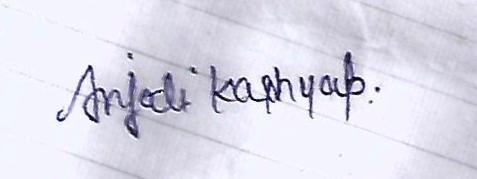 Anjali Kashyap.